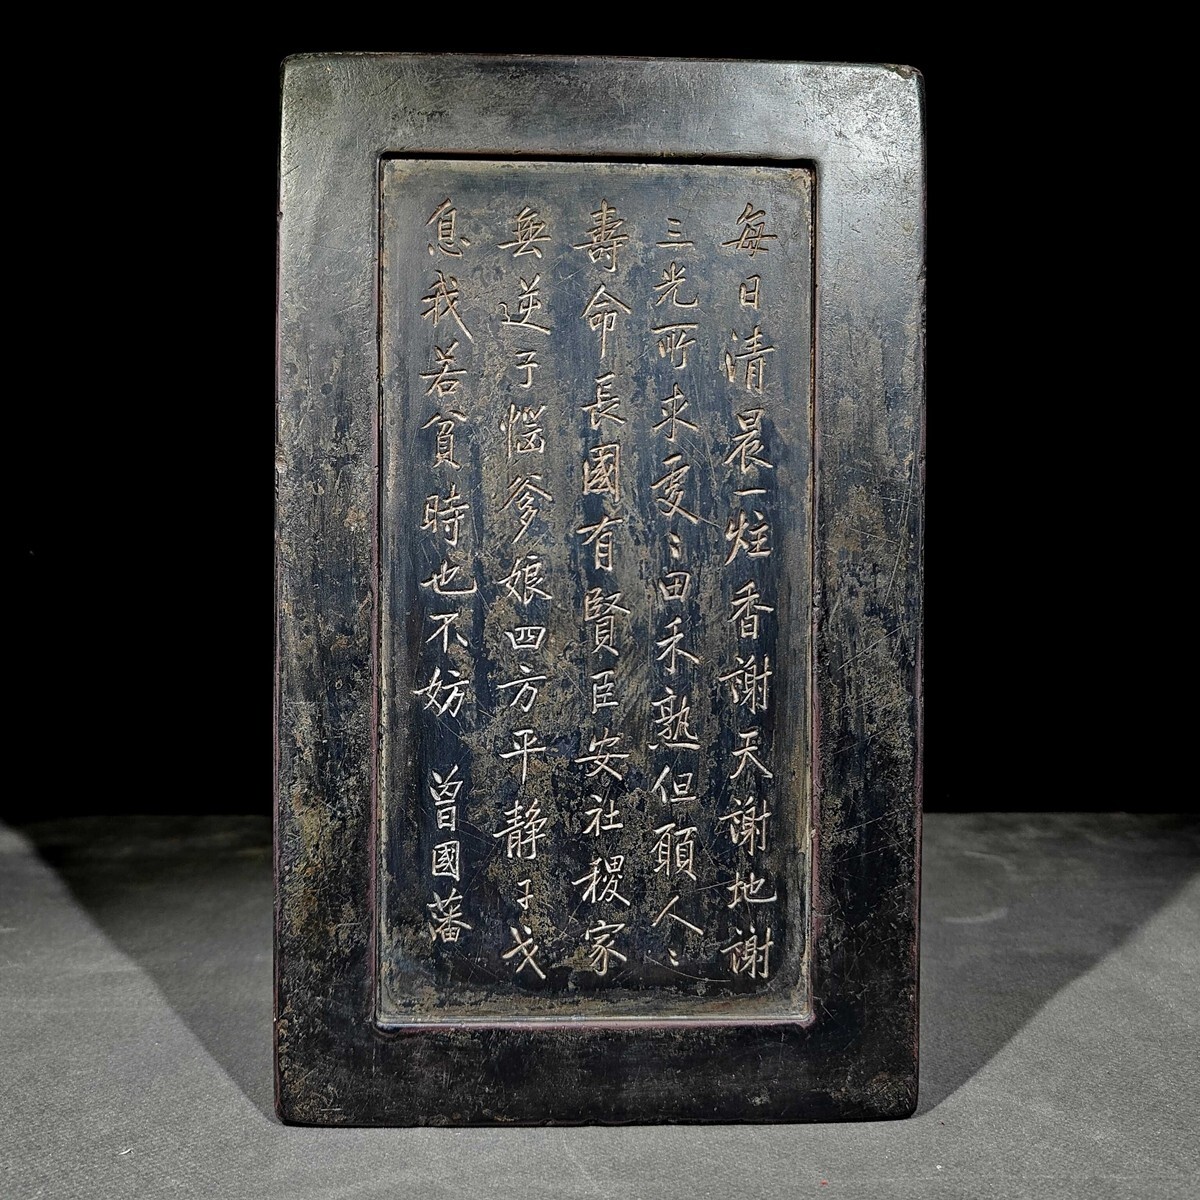 每日清晨一炷香謝天謝地謝
三光所求處〻田禾熟但願人〻
壽命長國有賢臣安社稷家
無逆子惱爹娘四方平静子戈
息我若貧時也不妨 曾國藩